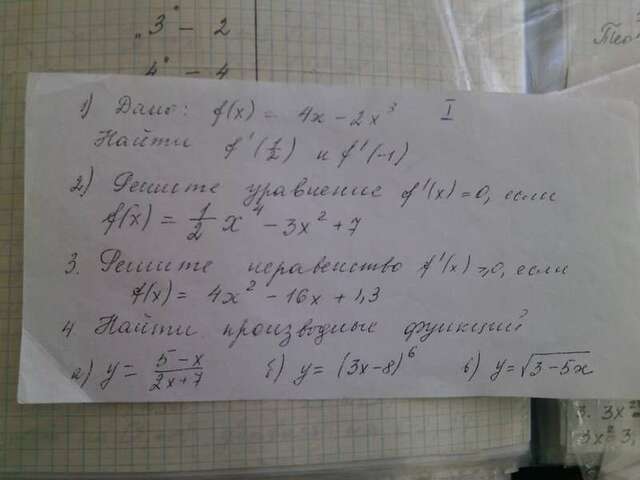 "3" - 2
"4" - 4
Тео
1) Дано: f(x) = 4x - 2x³ I
Найти f'(1/2) и f'(-1)
2) Решите уравнение f'(x)=0, если
f(x) = 1/2 x⁴ - 3x² + 7
3. Решите неравенство f'(x) ≥0, если
f(x) = 4x² - 16x + 1,3
4. Найти производные функций
а) y = (5-x)/(2x+7) б) y = (3x-8)⁶ в) y = √(3-5x)